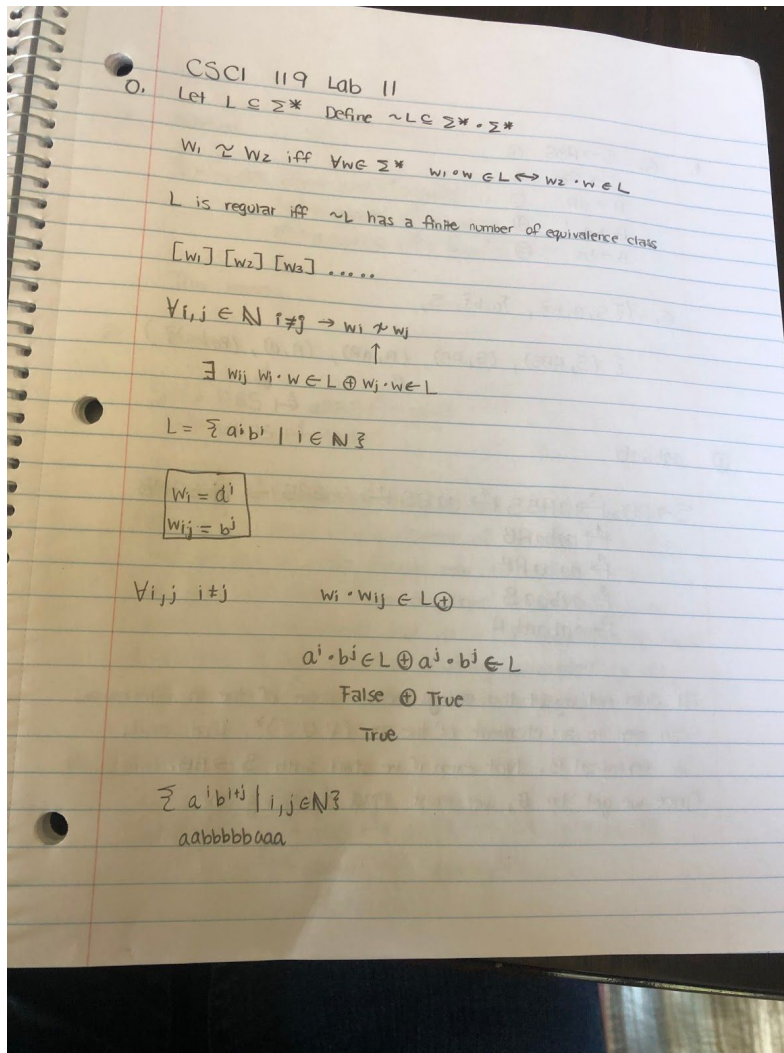 CSCI 119 Lab 11
0. Let L ⊆ Σ* Define ~L ⊆ Σ* · Σ*
W₁ ~ W₂ iff ∀w∈ Σ* w₁·w ∈ L ↔ w₂·w ∈ L
L is regular iff ~L has a finite number of equivalence class
[w₁] [w₂] [w₃] .....
∀i,j ∈ ℕ i≠j → wi ≁ wj
↑
∃ wij wi·w ∈ L ⊕ wj·w ∈ L
L = { aⁱbⁱ | i ∈ ℕ }
wi = dⁱ
wij = bʲ
∀i,j i≠j wi · wij ∈ L ⊕
aⁱ·bʲ ∈ L ⊕ aʲ·bʲ ∈ L
False ⊕ True
True
{ aⁱbⁱ⁺ʲ | i,j ∈ ℕ }
aabbbbbaaa